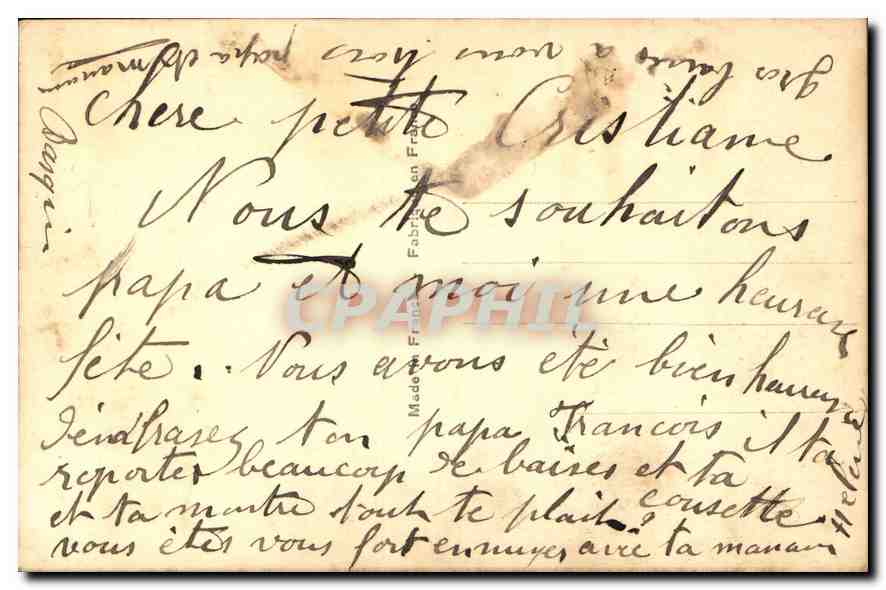 Chere petite Cristiane
Nous te souhaitons
papa et moi une heureuse
fête. Nous avons été bien heureux
d'enbrasez ton papa Francois il ta
reporter beaucoup de baises et ta cousette
et ta montre tout te plait
vous étes vous fort ennuyer avec ta maman
Helene
gros baises a vous trois
papa et maman
Made in France
Fabriqué en France
CPAPHIL